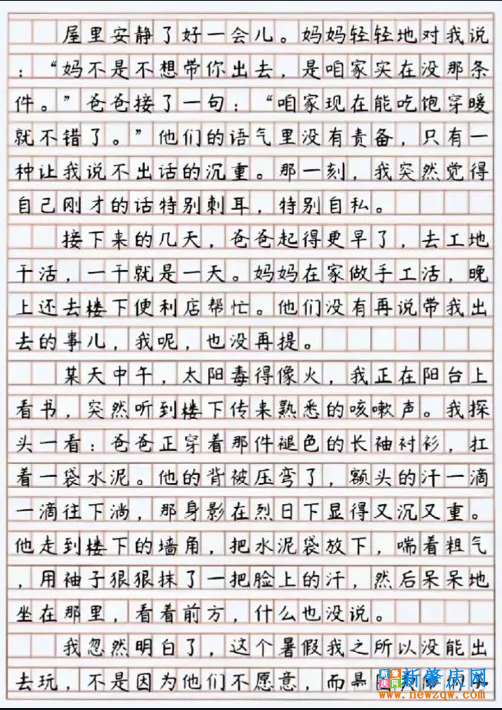 屋里安静了好一会儿。妈妈轻轻地对我说
：“妈不是不想带你出去，是咱家实在没那条
件。”爸爸接了一句：“咱家现在能吃饱穿暖
就不错了。”他们的语气里没有责备，只有一
种让我说不出话的沉重。那一刻，我突然觉得
自己刚才的话特别刺耳，特别自私。
接下来的几天，爸爸起得更早了，去工地
干活，一干就是一天。妈妈在家做手工活，晚
上还去楼下便利店帮忙。他们没有再说带我出
去的事儿，我呢，也没再提。
某天中午，太阳毒得像火，我正在阳台上
看书，突然听到楼下传来熟悉的咳嗽声。我探
头一看：爸爸正穿着那件褪色的长袖衬衫，扛
着一袋水泥。他的背被压弯了，额头的汗一滴
一滴往下淌，那身影在烈日下显得又沉又重。
他走到楼下的墙角，把水泥袋放下，喘着粗气
，用袖子狠狠抹了一把脸上的汗，然后呆呆地
坐在那里，看着前方，什么也没说。
我忽然明白了，这个暑假我之所以没能出
去玩，不是因为他们不愿意，而是因为
新肇店网
www.newzqw.com